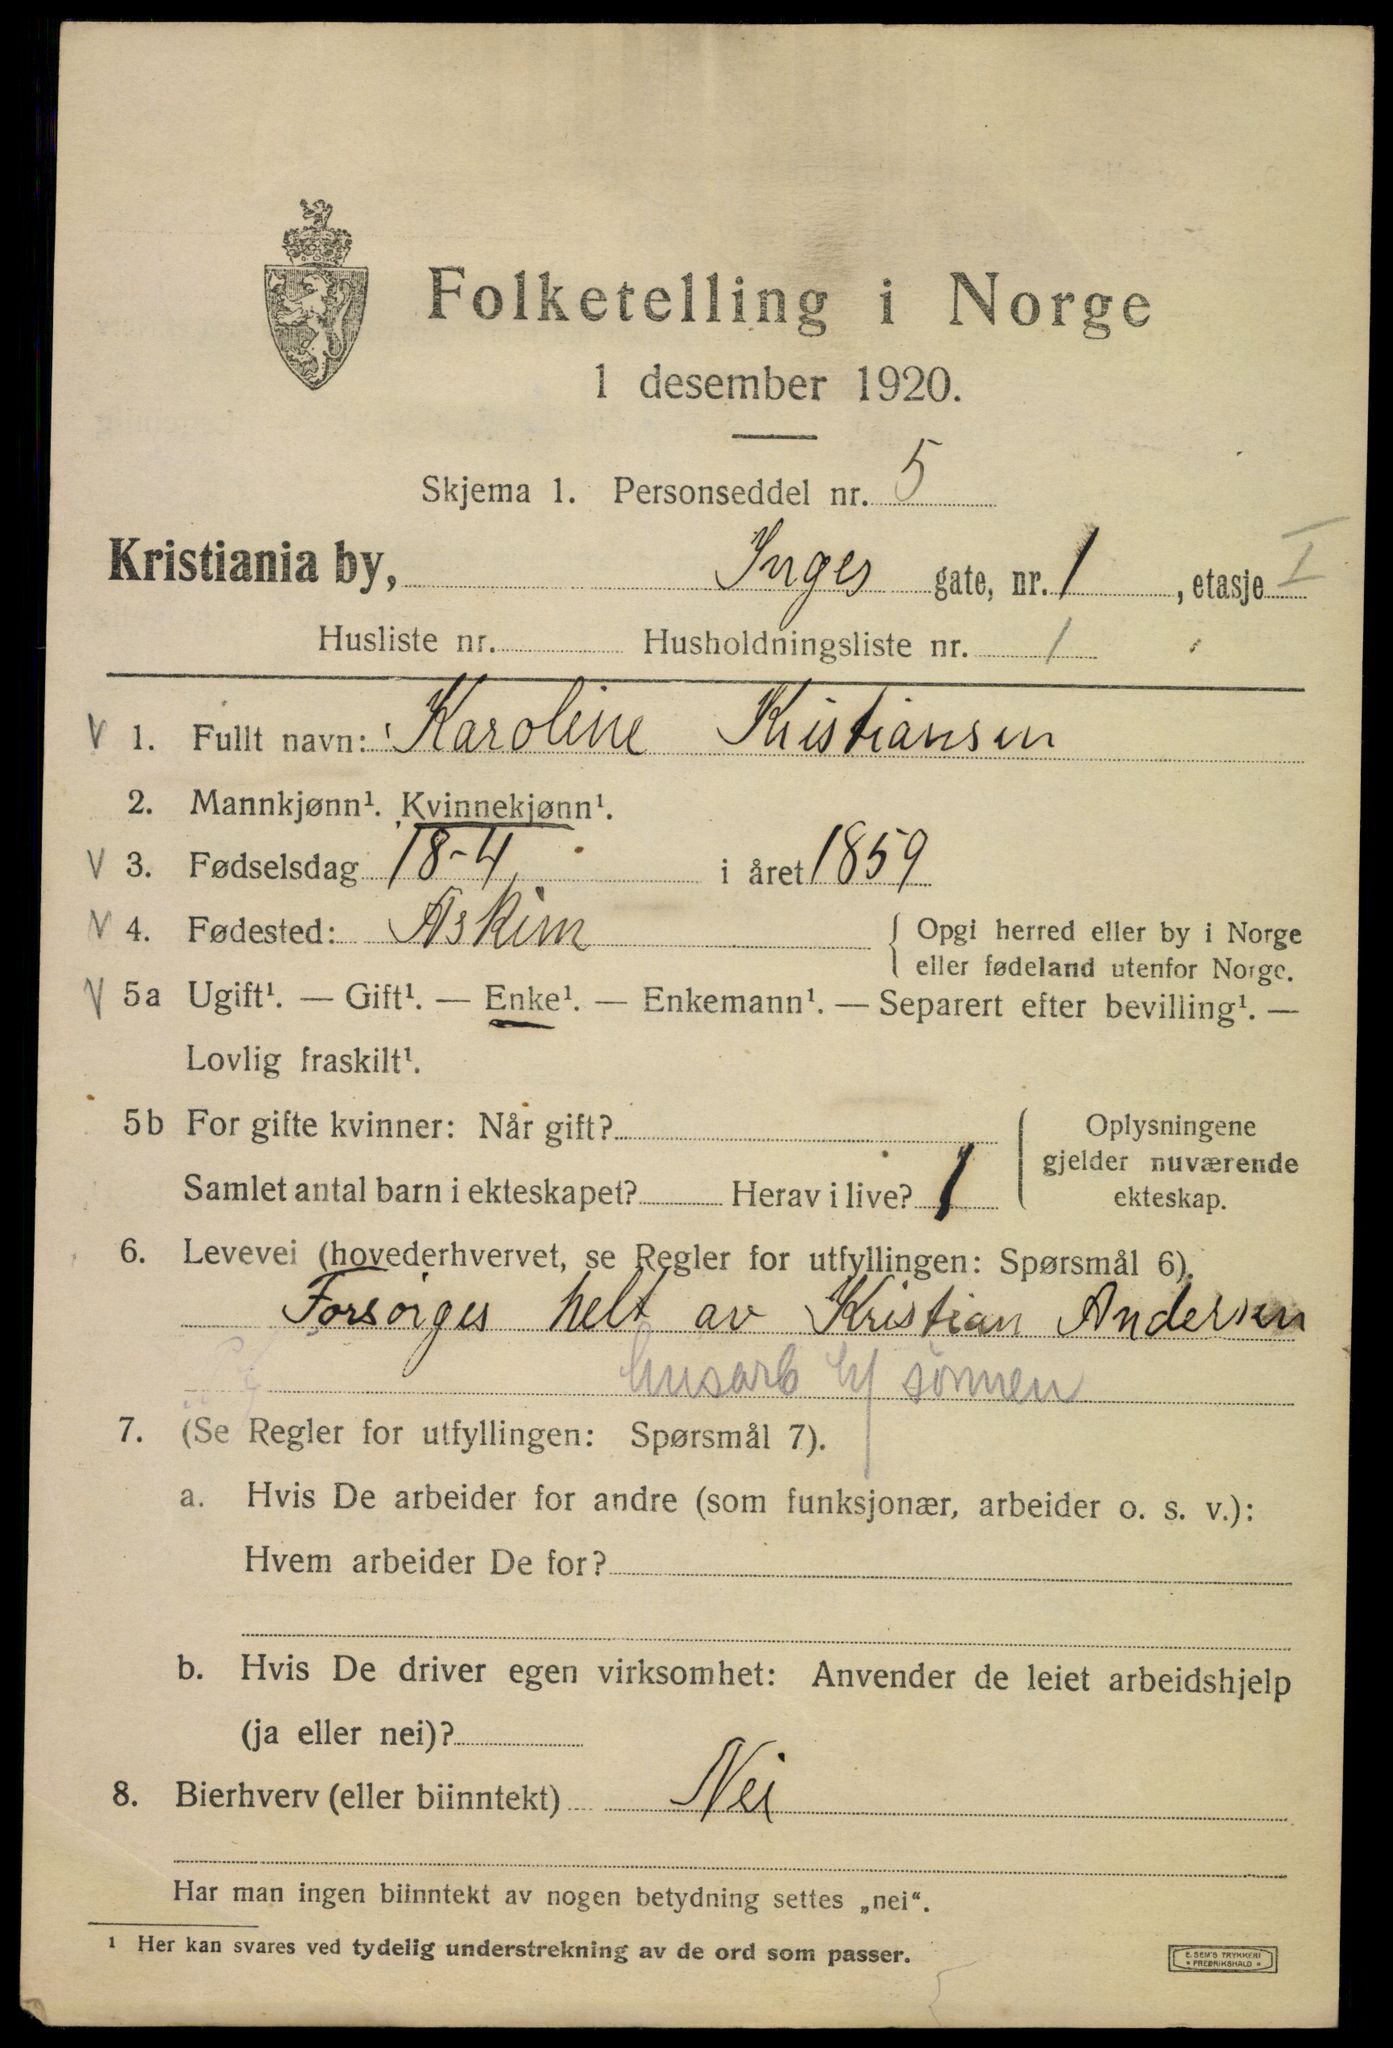 Folketelling i Norge
1 desember 1920.
Skjema 1. Personseddel nr. 5
Kristiania by, Inges gate, nr. 1, etasje I
Husliste nr. Husholdningsliste nr. 1
V 1. Fullt navn: Karoline Kristiansen
2. Mannkjønn¹. Kvinnekjønn¹.
V 3. Fødselsdag 18-4 i året 1859
V 4. Fødested: Askim
Opgi herred eller by i Norge
eller fødeland utenfor Norge.
V 5a Ugift¹. — Gift¹. — Enke¹. — Enkemann¹. — Separert efter bevilling¹. —
Lovlig fraskilt¹.
5b For gifte kvinner: Når gift?
Samlet antal barn i ekteskapet? Herav i live? 1
Oplysningene
gjelder nuværende
ekteskap.
6. Levevei (hovederhvervet, se Regler for utfyllingen: Spørsmål 6).
Forsørges helt av Kristian Andersen
husarb hj sønnen
7. (Se Regler for utfyllingen: Spørsmål 7).
a. Hvis De arbeider for andre (som funksjonær, arbeider o. s. v.):
Hvem arbeider De for?
b. Hvis De driver egen virksomhet: Anvender de leiet arbeidshjelp
(ja eller nei)?
8. Bierhverv (eller biinntekt) Nei
Har man ingen biinntekt av nogen betydning settes „nei“.
¹ Her kan svares ved tydelig understrekning av de ord som passer.
E. SEM'S TRYKKERI
* FREDRIKSHALD *